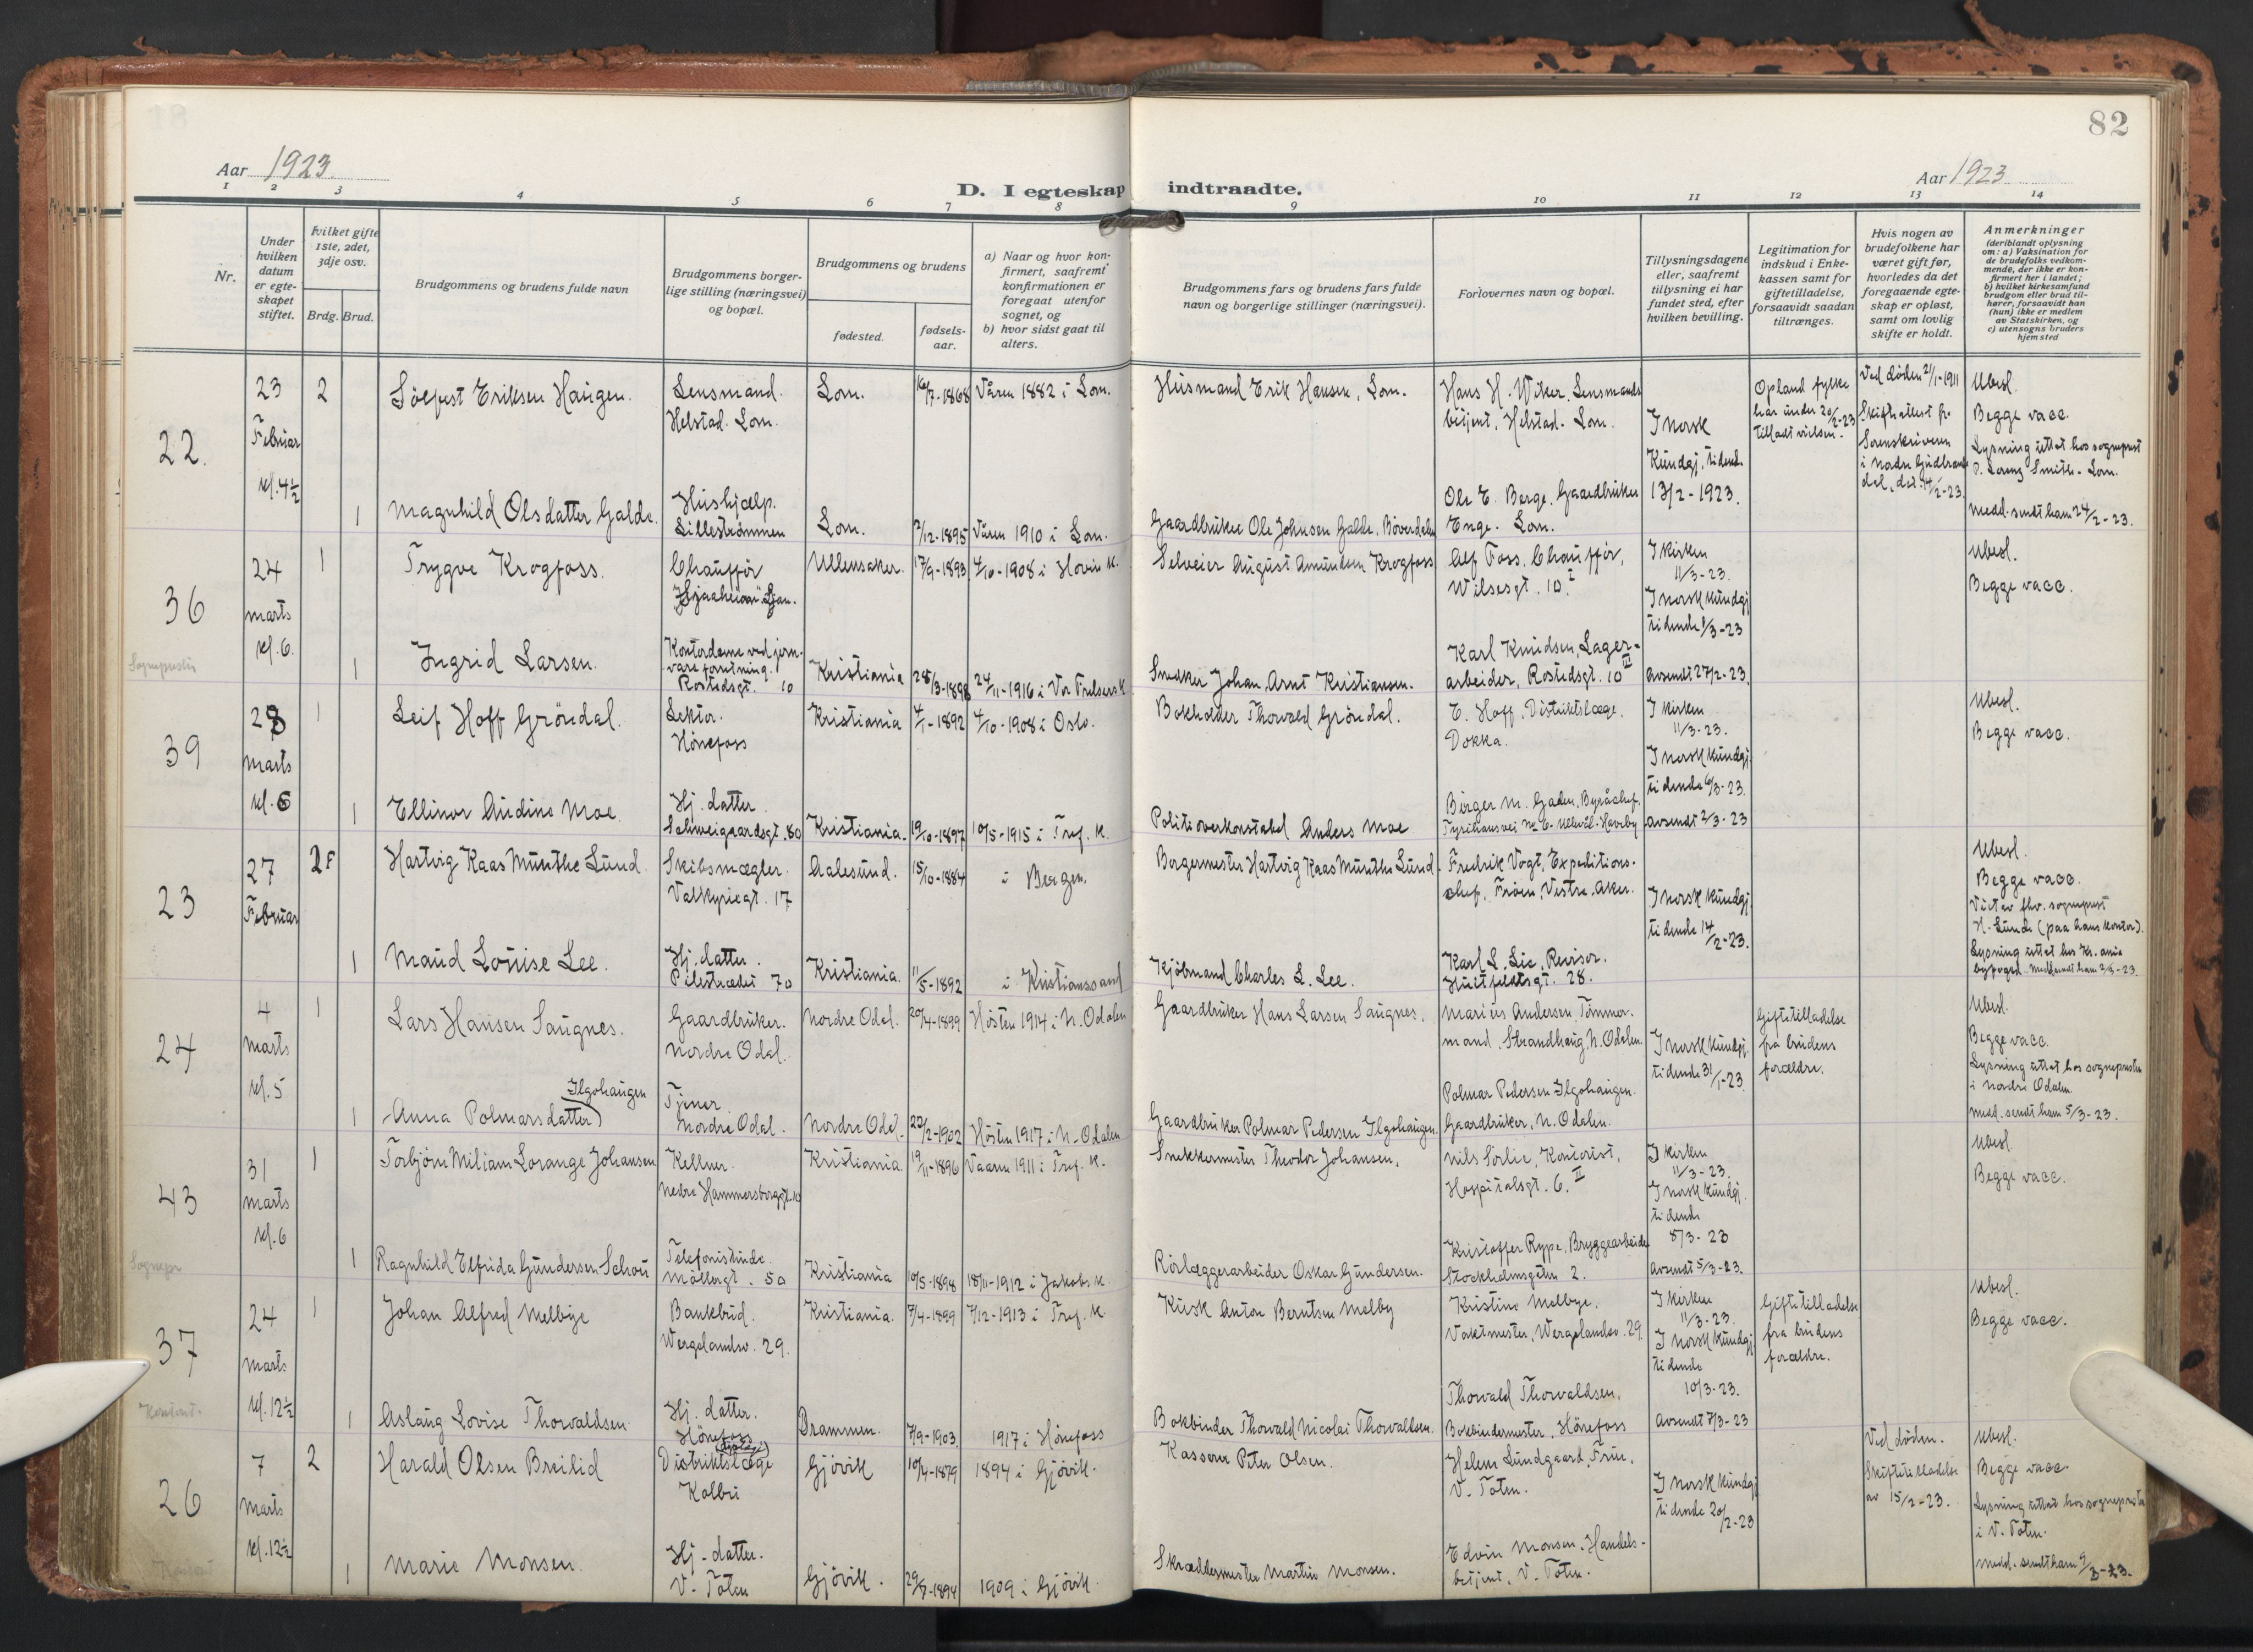 82
Aar 1923.
Aar 1923
D. I egteskap indtraadte.
1 2 3 4 5 6 7 8 9 10 11 12 13 14
Nr.
Under hvilken datum er egteskapet stiftet.
hvilket gifte 1ste, 2det, 3dje osv.
Brdg. Brud.
Brudgommens og brudens fulde navn
Brudgommens borgerlige stilling (næringsvei) og bopæl.
Brudgommens og brudens
fødested.
fødselsaar.
a) Naar og hvor konfirmert, saafremt konfirmationen er foregaat utenfor sognet, og
b) hvor sidst gaat til alters.
Brudgommens fars og brudens fars fulde navn og borgerlige stillinger (næringsvei).
Forlovernes navn og bopæl.
Tillysningsdagene eller, saafremt tillysning ei har fundet sted, efter hvilken bevilling.
Legitimation for indskud i Enkekassen samt for giftetilladelse, forsaavidt saadan tiltrænges.
Hvis nogen av brudefolkene har været gift før, hvorledes da det foregaaende egteskap er opløst, samt om lovlig skifte er holdt.
Anmerkninger
(deriblandt oplysning om: a) Vaksination for de brudefolks vedkommende, der ikke er konfirmert her i landet;
b) hvilket kirkesamfund brudgom eller brud tilhører, forsaavidt han (hun) ikke er medlem av Statskirken, og
c) utensogns bruders hjemsted
22.
23 Februar kl. 4½
2
Sölfest Eriksen Haugen.
Lensmand. Helstad. Lom.
Lom.
16/7-1868
Våren 1882 i Lom.
Husmand Erik Hansen, Lom.
Hans H. Wiker. Lensmandsbetjent, Helstad. Lom.
I Norsk Kundgj. tidend. 13/2-1923.
Opland fylke har under 20/2-23 tilladt vielsen.
Ved døden 21/1-1911 Skifteattest fra Sorenskriveren i Nordre Gudbrandsdal, dat. 14/2-23.
Ubesl.
Begge vacc.
Lysning uttat hos sogneprest P. Lorenz Smith - Lom.
Medd. sendt ham 24/2-23.
1
Magnhild Olsdatter Galde.
Hushjælp. Lillestrømmen
Lom.
2/12-1895
Våren 1910 i Lom.
Gaardbruker Ole Johnsen Galde, Böverdalen
Ole E. Berge, Gaardbruker Enge. Lom.
36
24 marts kl. 6.
1
Trygve Krogfoss.
Chaufför
Ljan.
Ullensaker.
17/9-1893
4/10-1908 i Hovin k.
Selveier August Amundsen Krogfoss
Alf Foss. Chaufför, Wilsesgt. 10 I
I kirken 11/3-23.
I norsk kundgj tidende 1/3-23
Avsendt 27/2-23.
Ubesl.
Begge vacc.
1
Ingrid Larsen.
Kontordame ved jernvareforretning. Rostedsgt. 10
Kristiania
28/3-1898
24/11-1916 i Vor Frelsers k
Snedker Johan Arnt Kristiansen.
Karl Knudsen, Lagerarbeider, Rostedsgt. 10 III
39
28 marts kl. 6
1
Leif Hoff Gröndal.
Lektor. Hönefoss
Kristiania
4/1-1892
4/10-1908 i Oslo.
Bokholder Thorvald Gröndal.
E. Hoff, Distriktslæge, Dokka.
I kirken 11/3-23.
I norsk kundgj. tidende 6/3-23.
avsendt 2/3-23
Ubesl.
Begge vacc.
1
Ellinor Andine Moe.
Hj. datter. Schweigaardsgt. 80
Kristiania.
19/10-1897
10/5-1915 i Tref. K.
Politioverkonstabel Anders Moe
Birger M. Gaden, Byråchef, Tyrihansvei Ullevål Haveby
23
27 Februar
2 F
Hartvig Kaas Munthe Lund.
Skibsmægler. Valkyriegt. 17
Aalesund.
15/10-1884
i Bergen.
Borgermester Hartvig Kaas Munthe Lund.
Fredrik Vogt, Expeditionschef, Fröen, Vestre Aker.
I norsk kundgj. tidende 14/2-23.
Ubesl.
Begge vacc.
Viet av fhv. sogneprest H. Lunde (paa hans kontor).
Lysning uttat hos Kr.ania byfoged. Medd. sendt ham 2/3-23
1
Maud Louise Lee.
Hj. datter. Pilestrædet 70
Kristiania.
11/5-1892
i Kristianssand
Kjöbmand Charles L. Lee.
Karl L. Lie, Revisor. Huitfeldtsgt. 28.
24
4 marts kl. 5
1
Lars Hansen Saugnes.
Gaardbruker. Nordre Odal.
Nordre Odal.
20/4-1899
Hösten 1914 i N. Odalen
Gaardbruker Hans Larsen Saugnes.
Marius Andersen, Tömmermand, Strandhaug, N. Odalen.
I norsk kundgj. tidende 31/1-23
Giftetilladelse fra brudens forældre.
Ubesl.
Begge vacc.
Lysning uttat hos sognepresten i Nordre Odalen.
Medd. sendt ham 5/3-23.
1
Anna Polmarsdatter) Ilgohaugen
Tjener. Nordre Odal.
Nordre Odal.
22/2-1902
Hösten 1917 i N. Odalen
Gaardbruker Polmar Pedersen Ilgohaugen.
Polmar Pedersen Ilgohaugen. Gaardbruker, N. Odalen.
43
31 marts kl. 6
1
Torbjörn Miliam Lorange Johansen
Kellner. Nedre Hammersborggt. 10
Kristiania.
19/11-1896
Vaaren 1911 i Tref. K.
Snekkermester Theodor Johansen.
Nils Sörlie, Kontorist, Hospitalsgt. 6. II
I kirken 11/3-23.
I norsk kundgj. tidende 8/3-23
Avsendt 5/3-23.
Ubesl.
Begge vacc.
1
Ragnhild Elfrida Gundersen Schou
Telefonistinde. Möllergt. 50
Kristiania
10/5-1894
18/11-1912 i Jakobs k.
Rörlæggerarbeider Oskar Gundersen.
Kristoffer Rype, Bryggearbeider Stockholmsgaten 2.
37
24 marts kl. 12½
1
Johan Alfred Melbye
Bankbud. Wergelandsv. 29.
Kristiania.
7/4-1899
7/12-1913 i Tref. K
Kusk Anton Berntsen Melby
Kristine Melbye. Vaktmester, Wergelandsv. 29.
I kirken 11/3-23.
I norsk kundgj tidende 10/3-23.
Avsendt 7/3-23
Giftetilladelse fra brudens forældre.
Ubesl.
Begge vacc.
1
Aslaug Lovise Thorvaldsen.
Hj. datter. Hönefoss
Drammen.
7/9-1903.
1917 i Hönefoss
Bokbinder Thorvald Nicolai Thorvaldsen.
Thorvald Thorvaldsen, Bokbindermester, Hönefoss
26
7 marts kl. 12½
2
Harald Olsen Breilid
Distriktslæge Kolbu
Gjövik
10/4-1879
1894 i Gjövik.
Kasserer Peter Olsen.
Helene Lundgaard, Frue, V. Toten.
I norsk kundgj tidende 20/2-23
Ved døden. Skiftetilladelse av 15/2-23.
Ubesl.
Begge vacc.
Lysning uttat hos sogneprest i V. Toten.
Medd. sendt ham 9/3-23.
1
Marie Monsen.
Hj. datter. V. Toten
Gjövik.
29/7-1894
1909 i Gjövik.
Skræddermester Martin Monsen.
Edvin Monsen. Handelsbetjent, V. Toten.